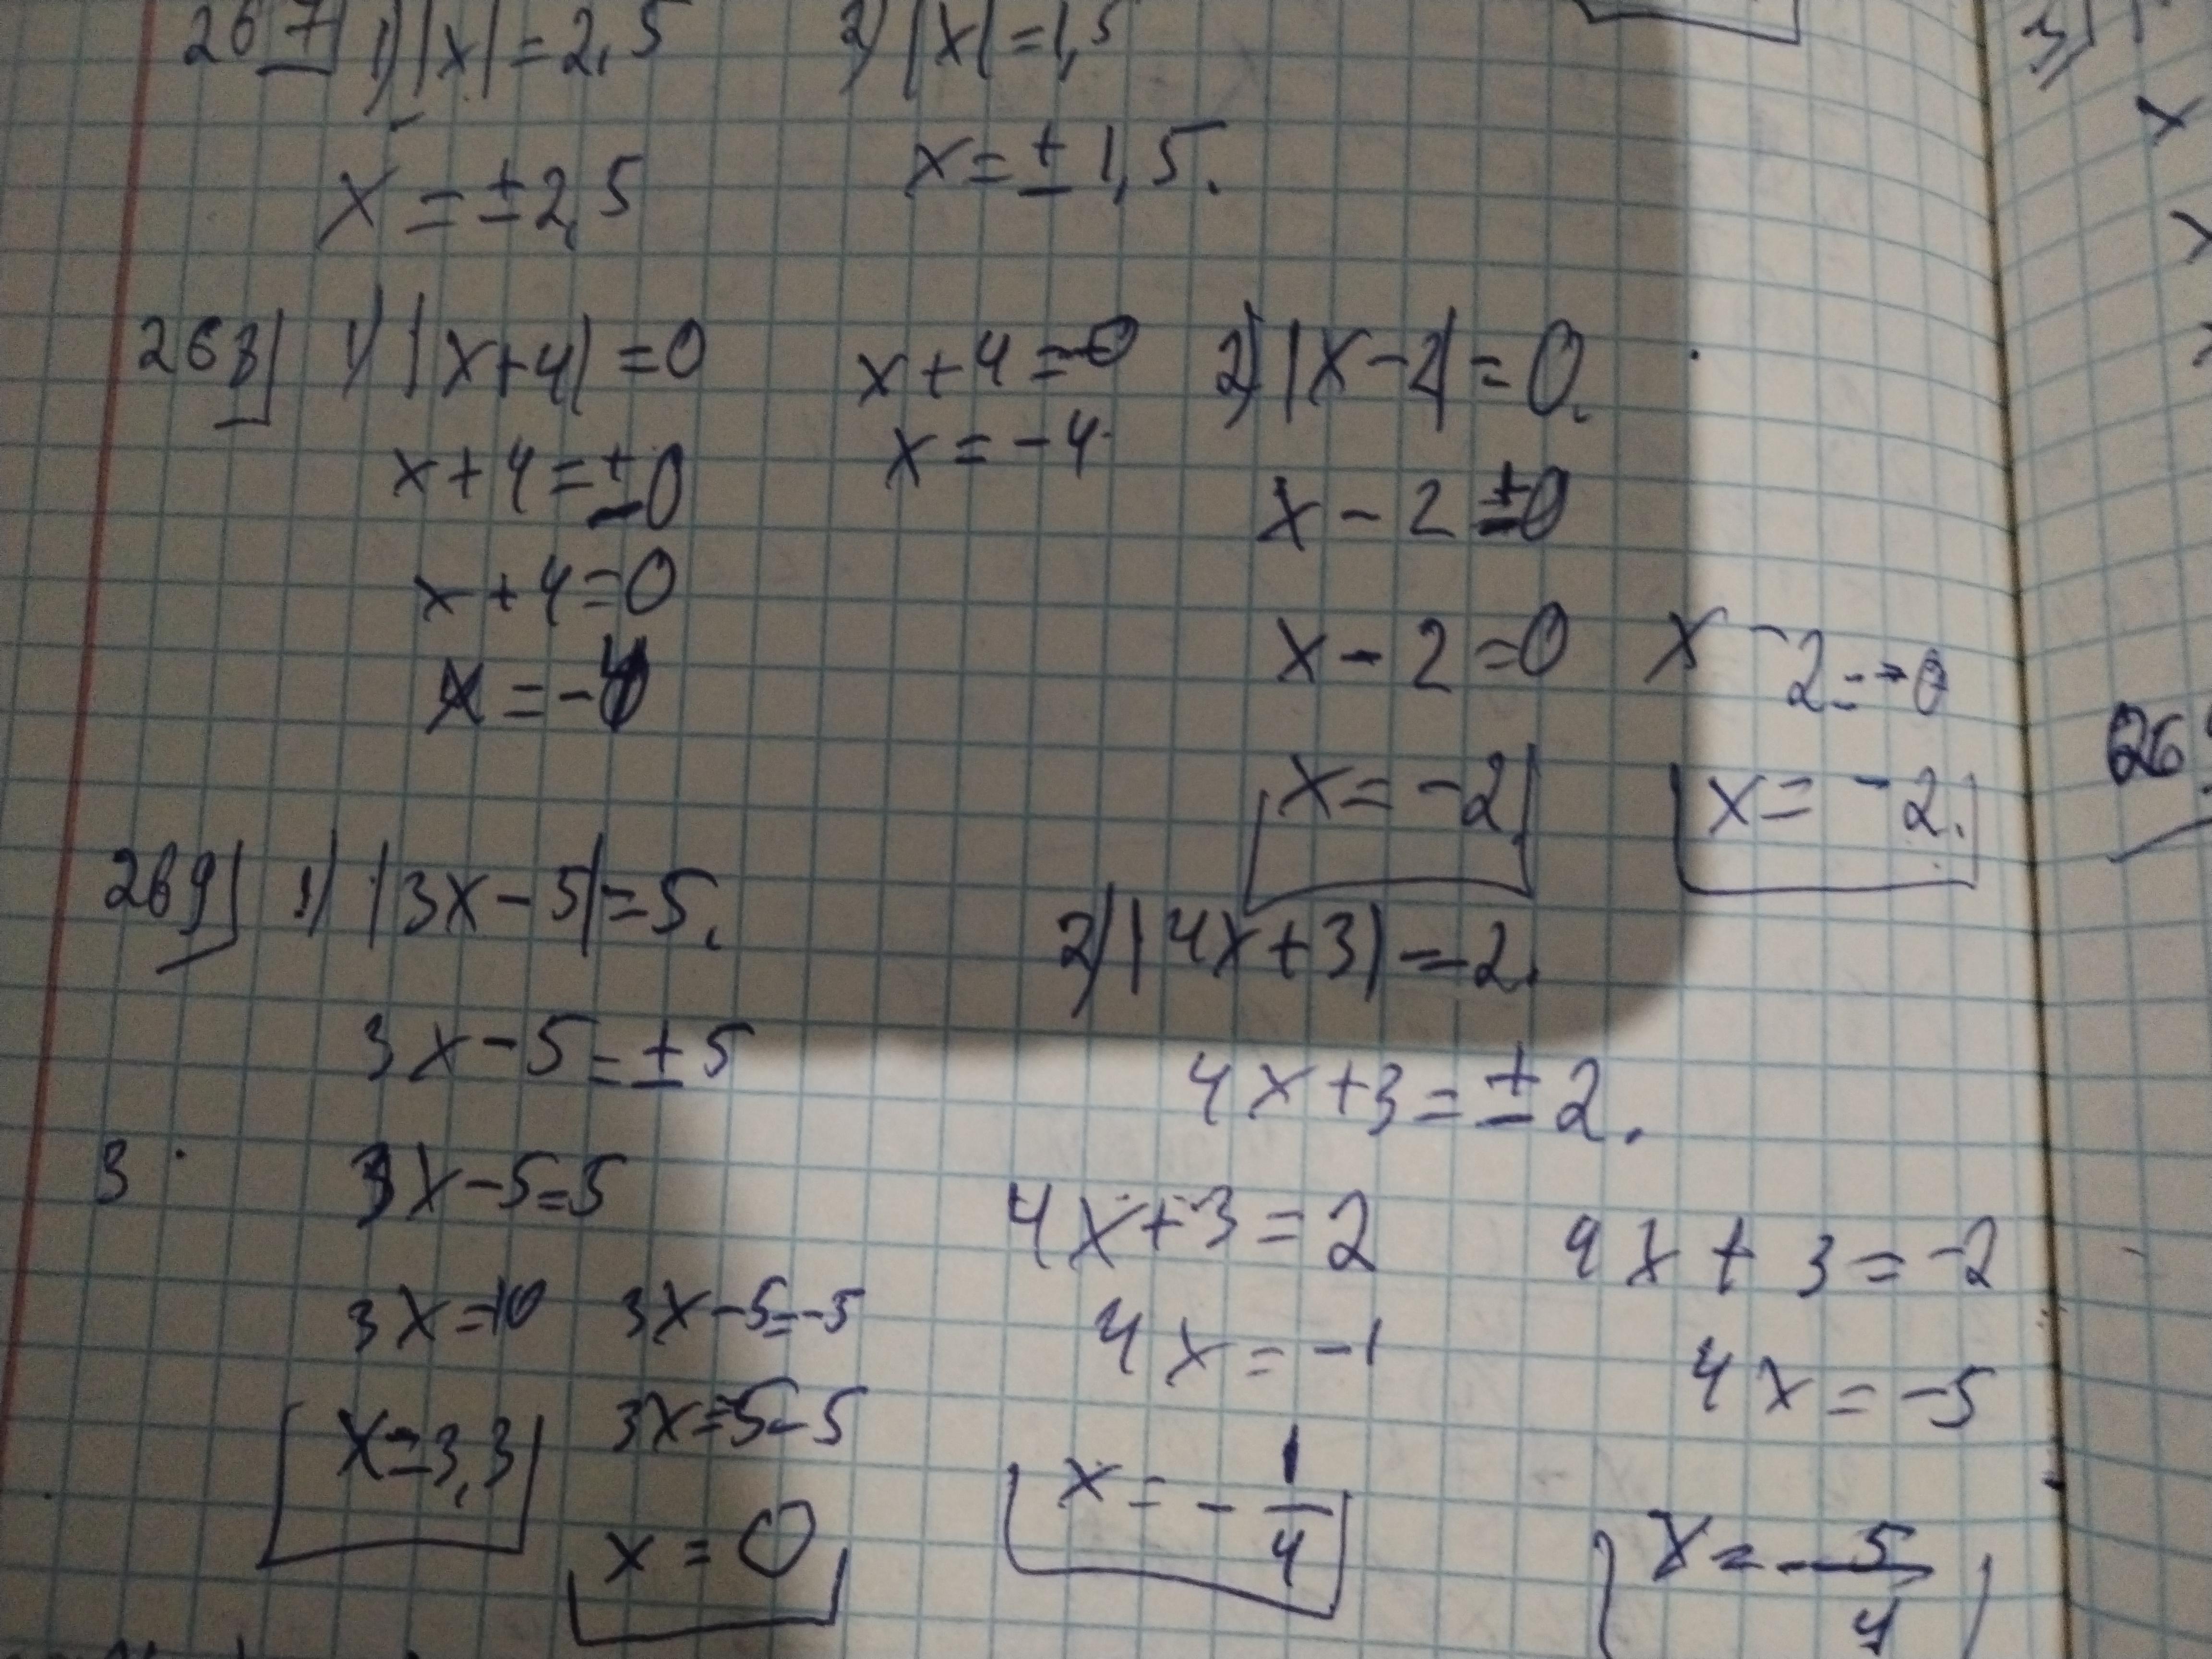 267 1) |x| = 2,5 2) |x| = 1,5
x = ±2,5 x = ±1,5.
268 1) |x+4| = 0 x+4=-0 2) |x-2| = 0.
x+4=±0 x = -4 x-2 ±0
x+4=0
x = -4 x-2=0 x-2=-0
x = -2 x = -2.
269 1) |3x-5|=5. 2) |4x+3|=-2.
3x-5=±5 4x+3=±2.
3 3x-5=5 4x+3=2 4x+3=-2
3x=10 3x-5=-5 4x=-1 4x=-5
x=3,3 3x=5-5 x=-1/4 x=-5/4
x=0